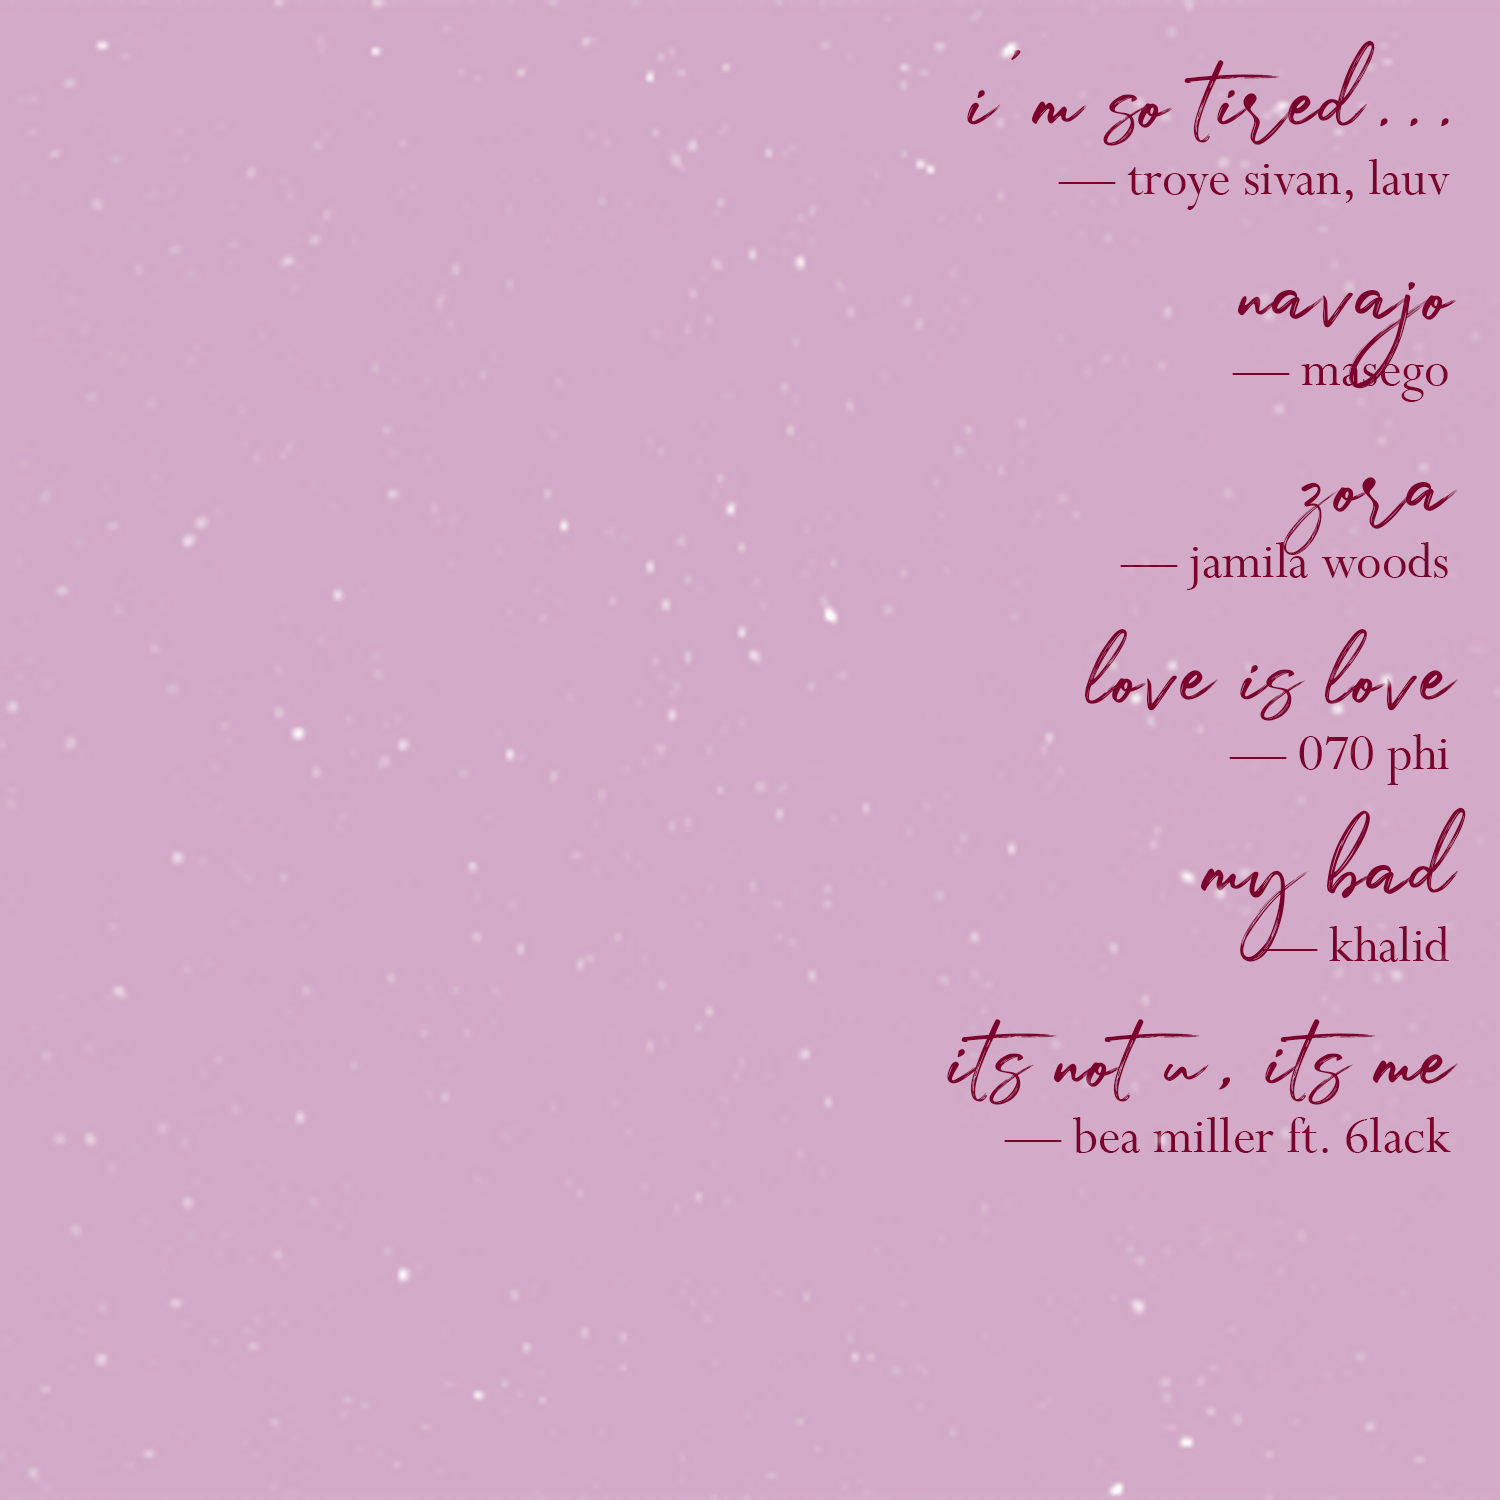 i'm so tired...
— troye sivan, lauv
navajo
— masego
zora
— jamila woods
love is love
— 070 phi
my bad
— khalid
its not u, its me
— bea miller ft. 6lack